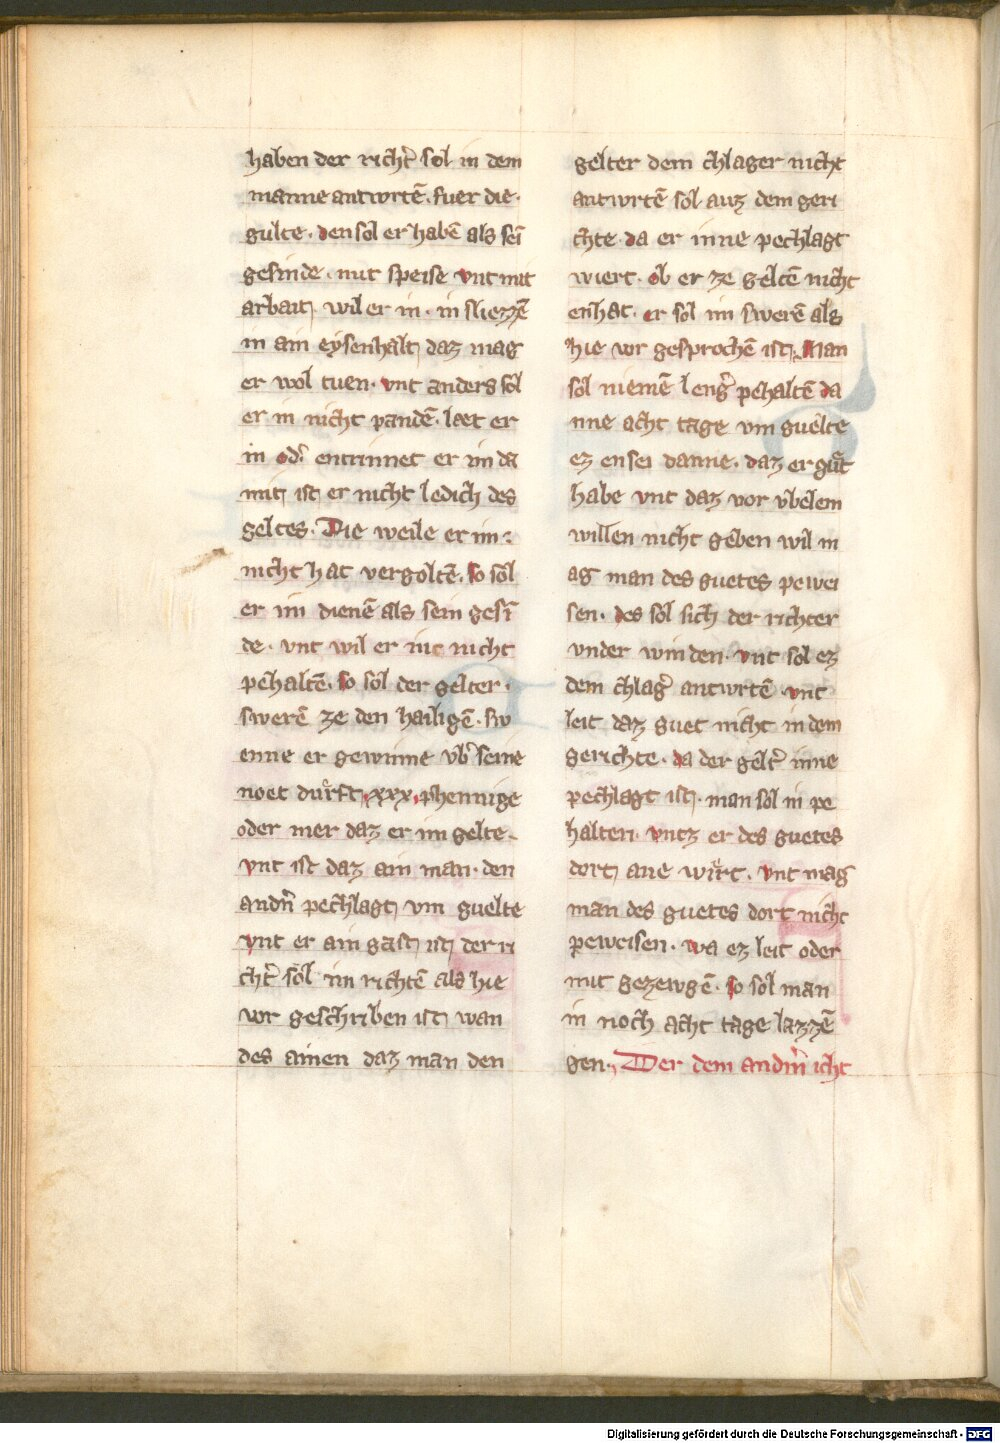 haben der richt̄ sol in dem
manne antwrtē. fuer die·
gulte. den sol er habē als sēi
gesinde. mit speise vnt mit
arbait. wil er in· in sliezzē
in ain eysenhalt daz mag
er wol tuen. vnt anders sol
er in nicht pandē. læt er
in od̄. entrinnet er im da
mit ist er nicht ledich des
geltes. Die weile er im:
nicht hat vergoltē. so sol
er im dienē als sein gesī
de. vnt wil er in nicht
pehaltē. so sol der gelter·
swerē ze den hailigē. sw
enne er gewinne vb̄ seine
noet duͤrft .xxx. phennige
oder mer daz er im gelte.
vnt ist daz ain man. den
andn̄ pechlagt vm guelte
vnt er ain gast ist der ri
cht̄ sol im richtē als hie
vor geschriben ist wan
des ainen daz man den
gelter dem chlager nicht
antwrtē sol auz dem geri
chte. da er inne pechlagt
wiert. ob er ze geltē nicht
enhat. er sol im swerē als
hie vor gesprochē ist. Man
sol niemē lenḡ pehaltē da
nne acht tage vm guelte
ez ensei danne. daz er guͤt
habe vnt daz vor vbelem
willen nicht geben wil m
ag man des guetes pewei
sen. des sol sich der richter
vnder winden. vnt sol ez
dem chlaḡ antwrtē vnt
leit daz guet nicht in dem
gerichte. da der gelt̄ inne
pechlagt ist. man sol in pe
halten. vntz er des guetes
dort ane wiͤrt. vnt mag
man des guetes dort nicht
peweisen. wa ez leit oder
mit gezewgē. so sol man
in noch acht tage lazzē
gen. Der dem andm̄ icht
Digitalisierung gefördert durch die Deutsche Forschungsgemeinschaft - DFG